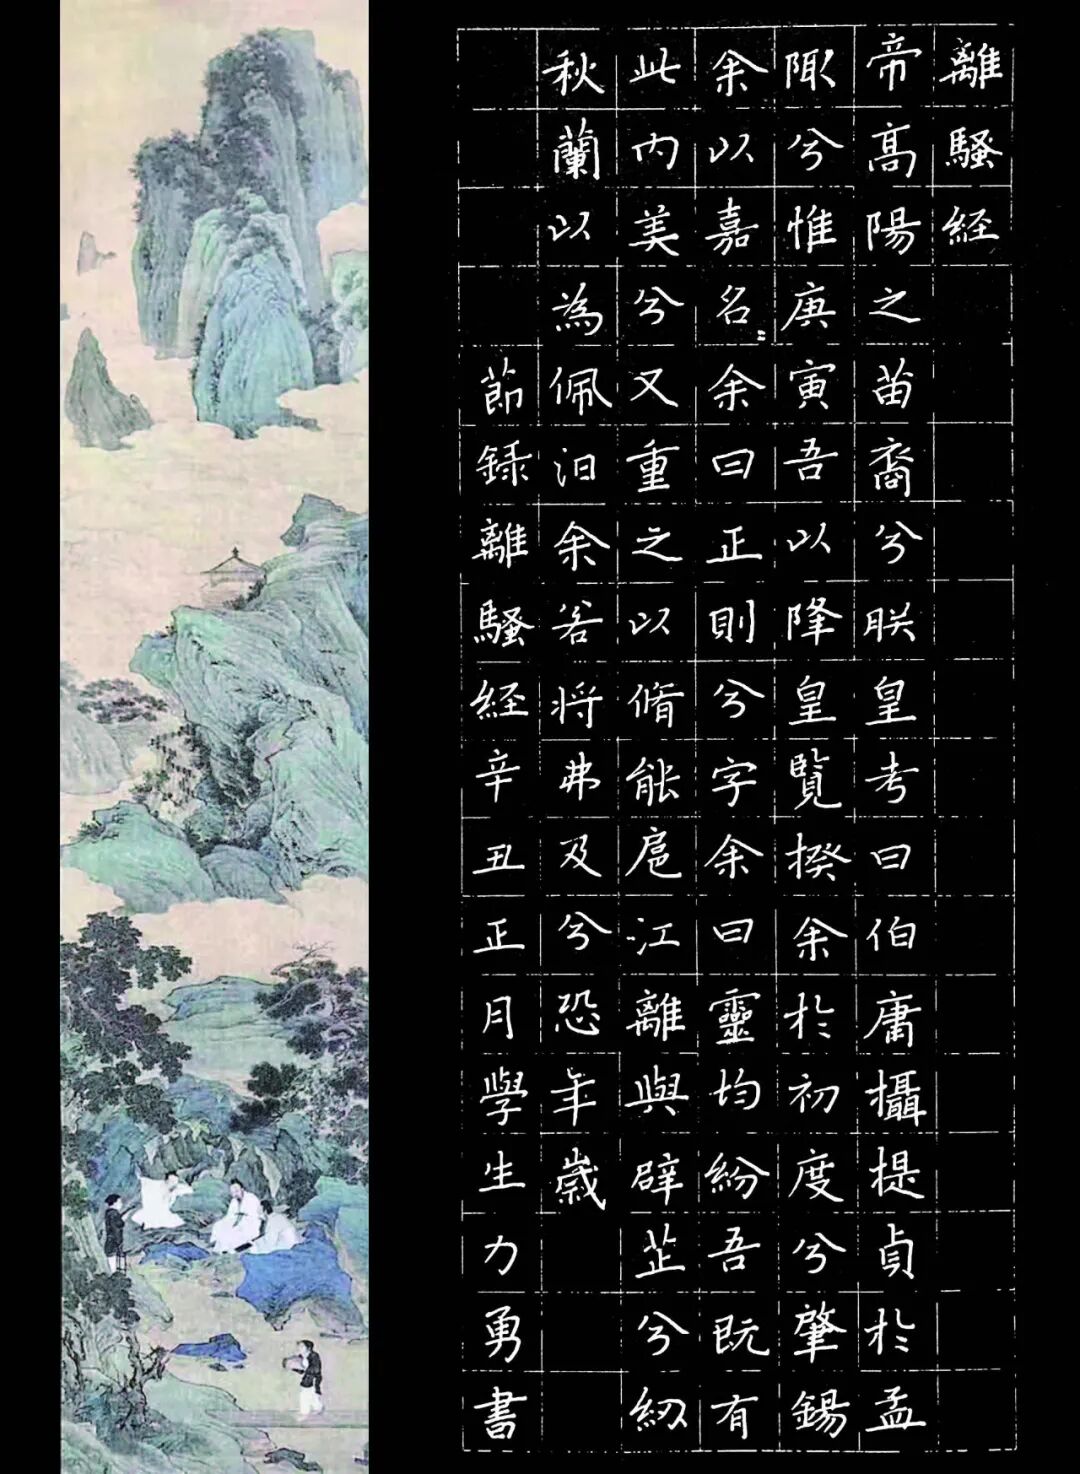 離騷経
帝高陽之苗裔兮朕皇考曰伯庸攝提貞於孟
陬兮惟庚寅吾以降皇覽揆余於初度兮肇錫
余以嘉名〻余曰正則兮字余曰靈均紛吾既有
此内美兮又重之以脩能扈江離與辟芷兮紉
秋蘭以為佩汩余若将弗及兮恐年歲
節録離騷経辛丑正月學生力勇書